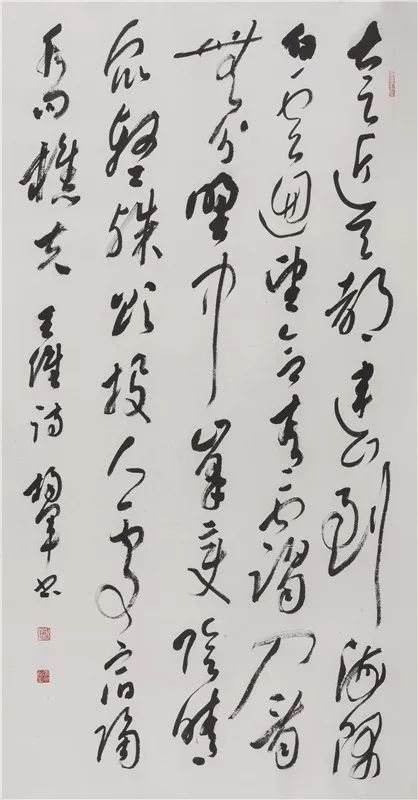 太乙近天都連山到海隅
白雲迴望合青靄入看
無分野中峰變陰晴
眾壑殊欲投人處宿隔
水問樵夫 王維詩 書